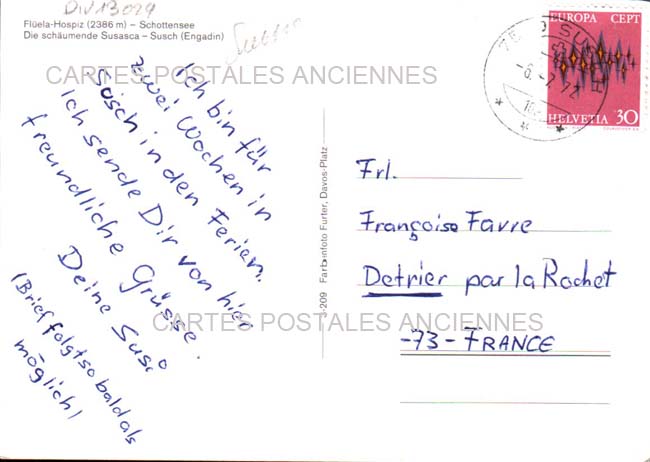 Div 13029
Flüela-Hospiz (2386 m) – Schottensee
Die schäumende Susasca – Susch (Engadin)
CARTES POSTALES ANCIENNES
Ich bin für
zwei Wochen in
Susch in den Ferien.
Ich sende Dir von hier
freundliche Grüsse.
Deine Susi
(Brief folgt so bald als
möglich)
3-209 Farbenfoto Furter, Davos-Platz
EUROPA CEPT
HELVETIA 30
COURVOISIER S.A.
SUSCH
-6.-7.72
Frl.
Françoise Favre
Detrier par la Rochet
-73- FRANCE
CARTES POSTALES ANCIENNES